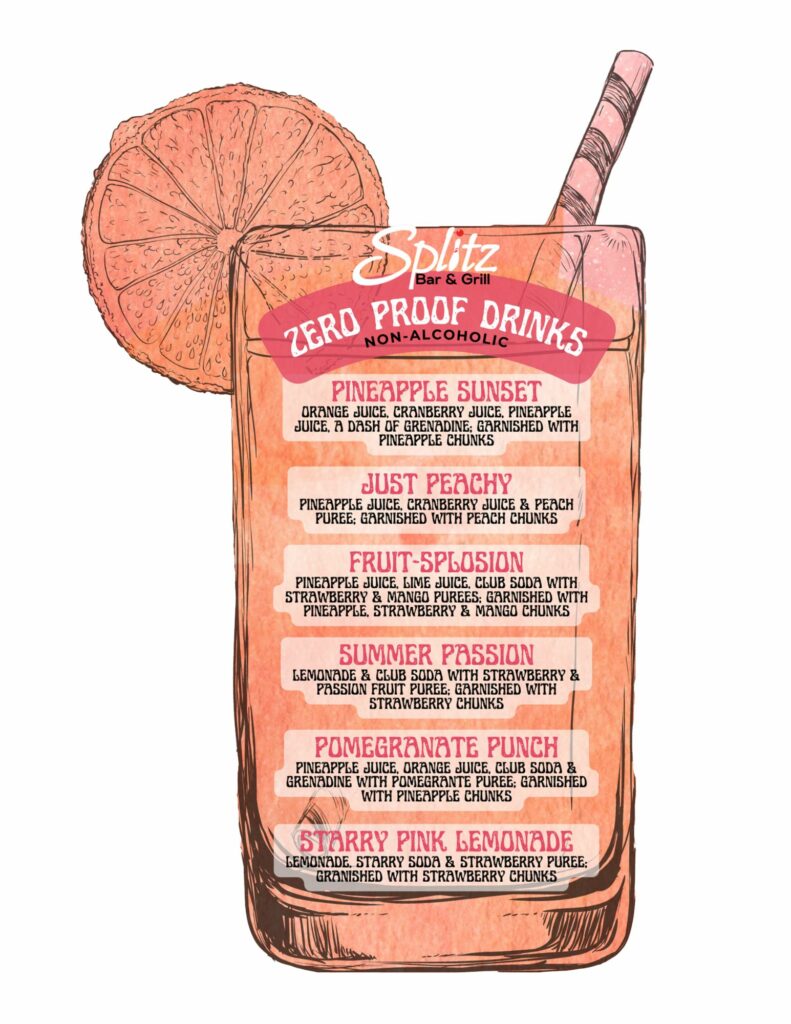 Splitz
Bar & Grill
ZERO PROOF DRINKS
NON-ALCOHOLIC
PINEAPPLE SUNSET
ORANGE JUICE, CRANBERRY JUICE, PINEAPPLE
JUICE, A DASH OF GRENADINE; GARNISHED WITH
PINEAPPLE CHUNKS
JUST PEACHY
PINEAPPLE JUICE, CRANBERRY JUICE & PEACH
PUREE; GARNISHED WITH PEACH CHUNKS
FRUIT-SPLOSION
PINEAPPLE JUICE, LIME JUICE, CLUB SODA WITH
STRAWBERRY & MANGO PUREES; GARNISHED WITH
PINEAPPLE, STRAWBERRY & MANGO CHUNKS
SUMMER PASSION
LEMONADE & CLUB SODA WITH STRAWBERRY &
PASSION FRUIT PUREE; GARNISHED WITH
STRAWBERRY CHUNKS
POMEGRANATE PUNCH
PINEAPPLE JUICE, ORANGE JUICE, CLUB SODA &
GRENADINE WITH POMEGRANTE PUREE; GARNISHED
WITH PINEAPPLE CHUNKS
STARRY PINK LEMONADE
LEMONADE, STARRY SODA & STRAWBERRY PUREE;
GRANISHED WITH STRAWBERRY CHUNKS